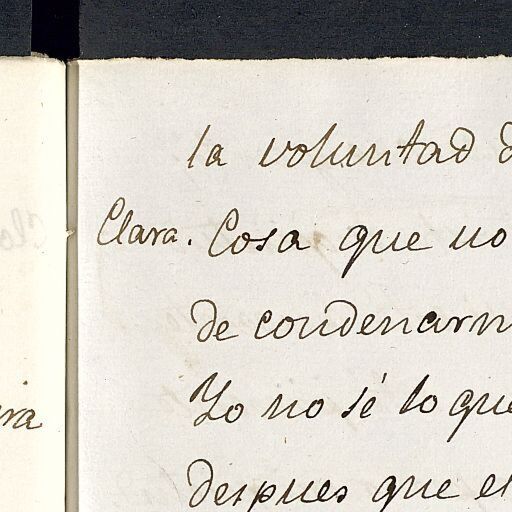 la voluntad d
Clara. Cosa que no
de condenarn
Yo no sé lo que
despues que e
ra